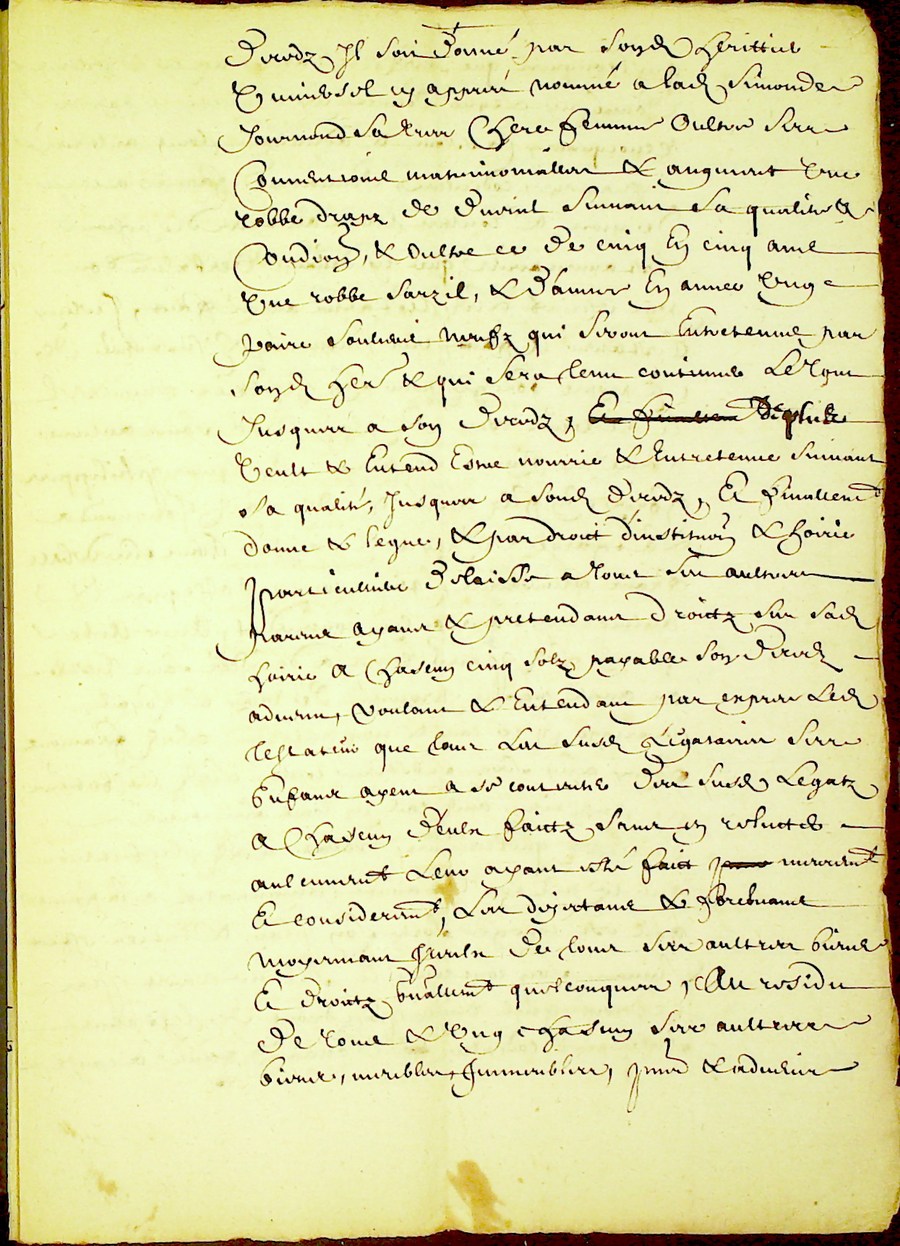 Deceds Il soit donné par sond heritier
Universel cy apprés nommé a lad Simonde
sa chere femme Oultre ses
Conventions matrimonialles & augment Une
robbe drapz de suivant sa qualité &
Condiõn, & oultre ce De cinq En cinq ans
Une robbe sarzil, & D'année En année Ung
paire soulliers neufz qui seront Entretenus par
sond her & qui sera tenu continuer Le tout
Jusques a son Deceds, Et finallem De plus
Veult & Entend Estre nourrie & Entretenue suivant
sa qualité, Jusques a sond Deceds, Et finallemt
donne & legue, & par droict d'institution & hoirie
particuliere Delaisse a tous ses aultres
parens ayans & pretendans droictz sur sad
hoirie A Chascun cinq solz payables son Deceds
advenu, Voulant & Entendant par exprés Led
testateur que tous Les susd Legataires ses
Enfans ayent a se contenter Des susd Legatz
A Chascun D'eulx faictz sans en
aulcunemt Leur ayant esté faict meuremt
Et considerémt, Les & privant
moyennant Iceulx De tous ses aultres biens
Et droictz quelconques, Au residu
De tous & Ung chascun ses aultres
biens, meubles, Immeubles, pñts & advenir